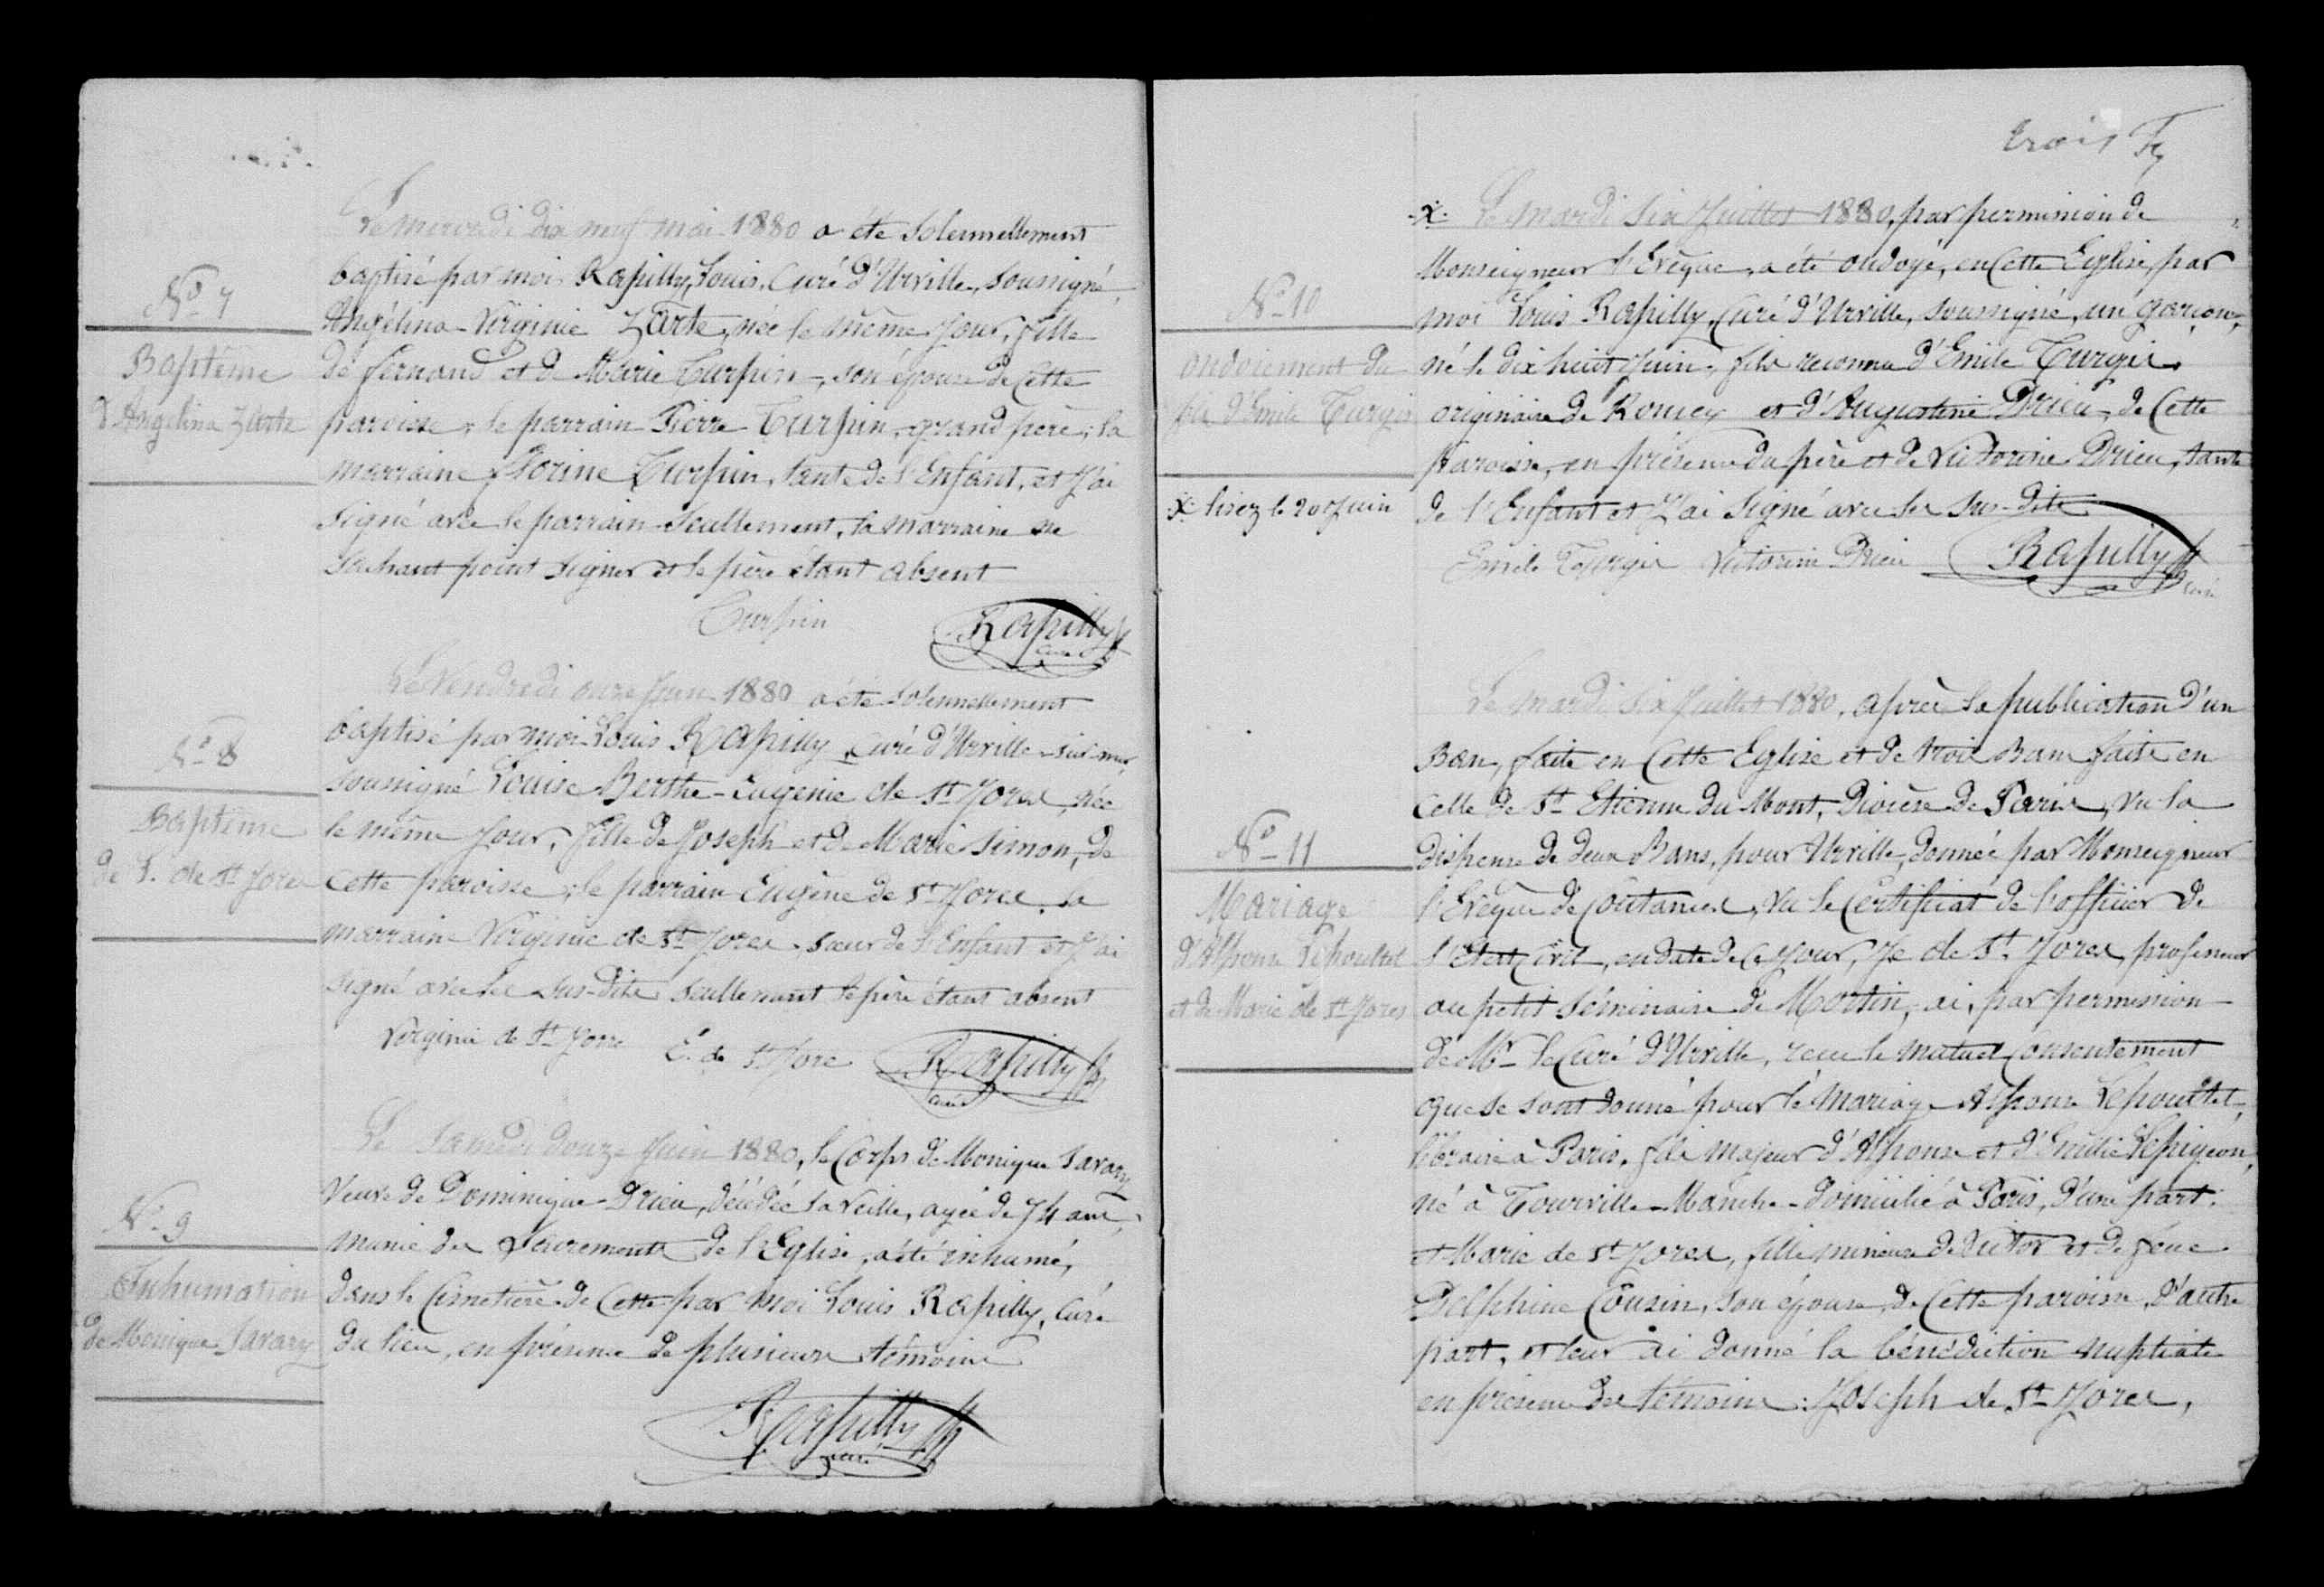 N° 7
Baptême
d'Angélina Zarte
Le mercredi dix neuf mai 1880 a été solennellement
baptisé par moi Rapilly, Louis, Curé d'Urville, soussigné,
Angélina Virginie Zarte, née le même jour, fille
de fernand et de Marie Turpin, son épouse de cette
paroisse; le parrain Pierre Turpin, grand père; la
marraine florine Turpin, tante de l'Enfant, et j'ai
signé avec le parrain seullement, la marraine ne
sachant point signer et le père étant absent
Turpin Rapilly
curé
N° 8
Baptême
de L. de St Jores
Le Vendredi onze Juin 1880 a été solennellement
baptisé par moi Louis Rapilly, curé d'Urville-sur-mer,
soussigné Louise Berthe-Eugénie de St Jores, née
le même jour, fille de Joseph et de Marie Simon, de
cette paroisse; le parrain Eugène de St Jores, la
marraine Virginie de St Jores, sœur de l'Enfant et j'ai
signé avec les sus-dits seullement le père étant absent
Virginie de St Jorre E. de St Jore Rapilly
curé
N° 9
Inhumation
de Monique Savary
Le Samedi douze Juin 1880, le Corps de Monique Savary
veuve de Dominique Drieu, décédée la veille, agée de 74 ans,
munie des Sacrements de l'Eglise, a été inhumé,
dans le Cimetière de Cette par moi Louis Rapilly, Curé
du lieu, en présence de plusieurs témoins
Rapilly
curé
trois
N° 10
ondoiement du
fils d'Emile Turgis
x lisez le 20 Juin
x Le mardi six Juillet 1880, par permission de
Monseigneur l'Evêque, a été ondoyé, en cette Eglise, par
moi Louis Rapilly, Curé d'Urville, soussigné, un garçon,
né le dix huit Juin, fils reconnu d'Emile Turgis
originaire de Roncey et d'Augustine Drieu, de Cette
paroisse, en présence du père et de Victorine Drieu, tante
de l'Enfant et j'ai signé avec les sus-dits
Emile Turgis Victorine Drieu Rapilly
curé
N° 11
Mariage
d'Alphonse Lepoultel
et de Marie de St Jores
Le mardi six Juillet 1880, après la publication d'un
Ban, faite en Cette Eglise et de trois Bans faite en
Celle de St Etienne du Mont, Diocèse de Paris, vu la
dispense de deux Bans, pour Urville, donnée par Monseigneur
l'Evêque de Coutances, vu le Certificat de l'officier de
l'Etat Civil, en date de Ce jour, Je de St Jores, professeur
au petit séminaire de Mortain, ai, par permission
de Mr le Curé d'Urville, reçu le mutuel Consentement
que se sont donné pour le mariage Alphonse Lepoultel,
libraire à Paris, fils majeur d'Alphonse et d'Emilie Lepigeon,
né à Tourville-Manche-domicilié à Paris, d'une part;
et Marie de St Jores, fille mineure de Victor et de feue
Delphine Cousin, son épouse, de Cette paroisse, d'autre
part, et leur ai donné la bénédiction nuptiale
en présence des témoins: Joseph de St Jores,